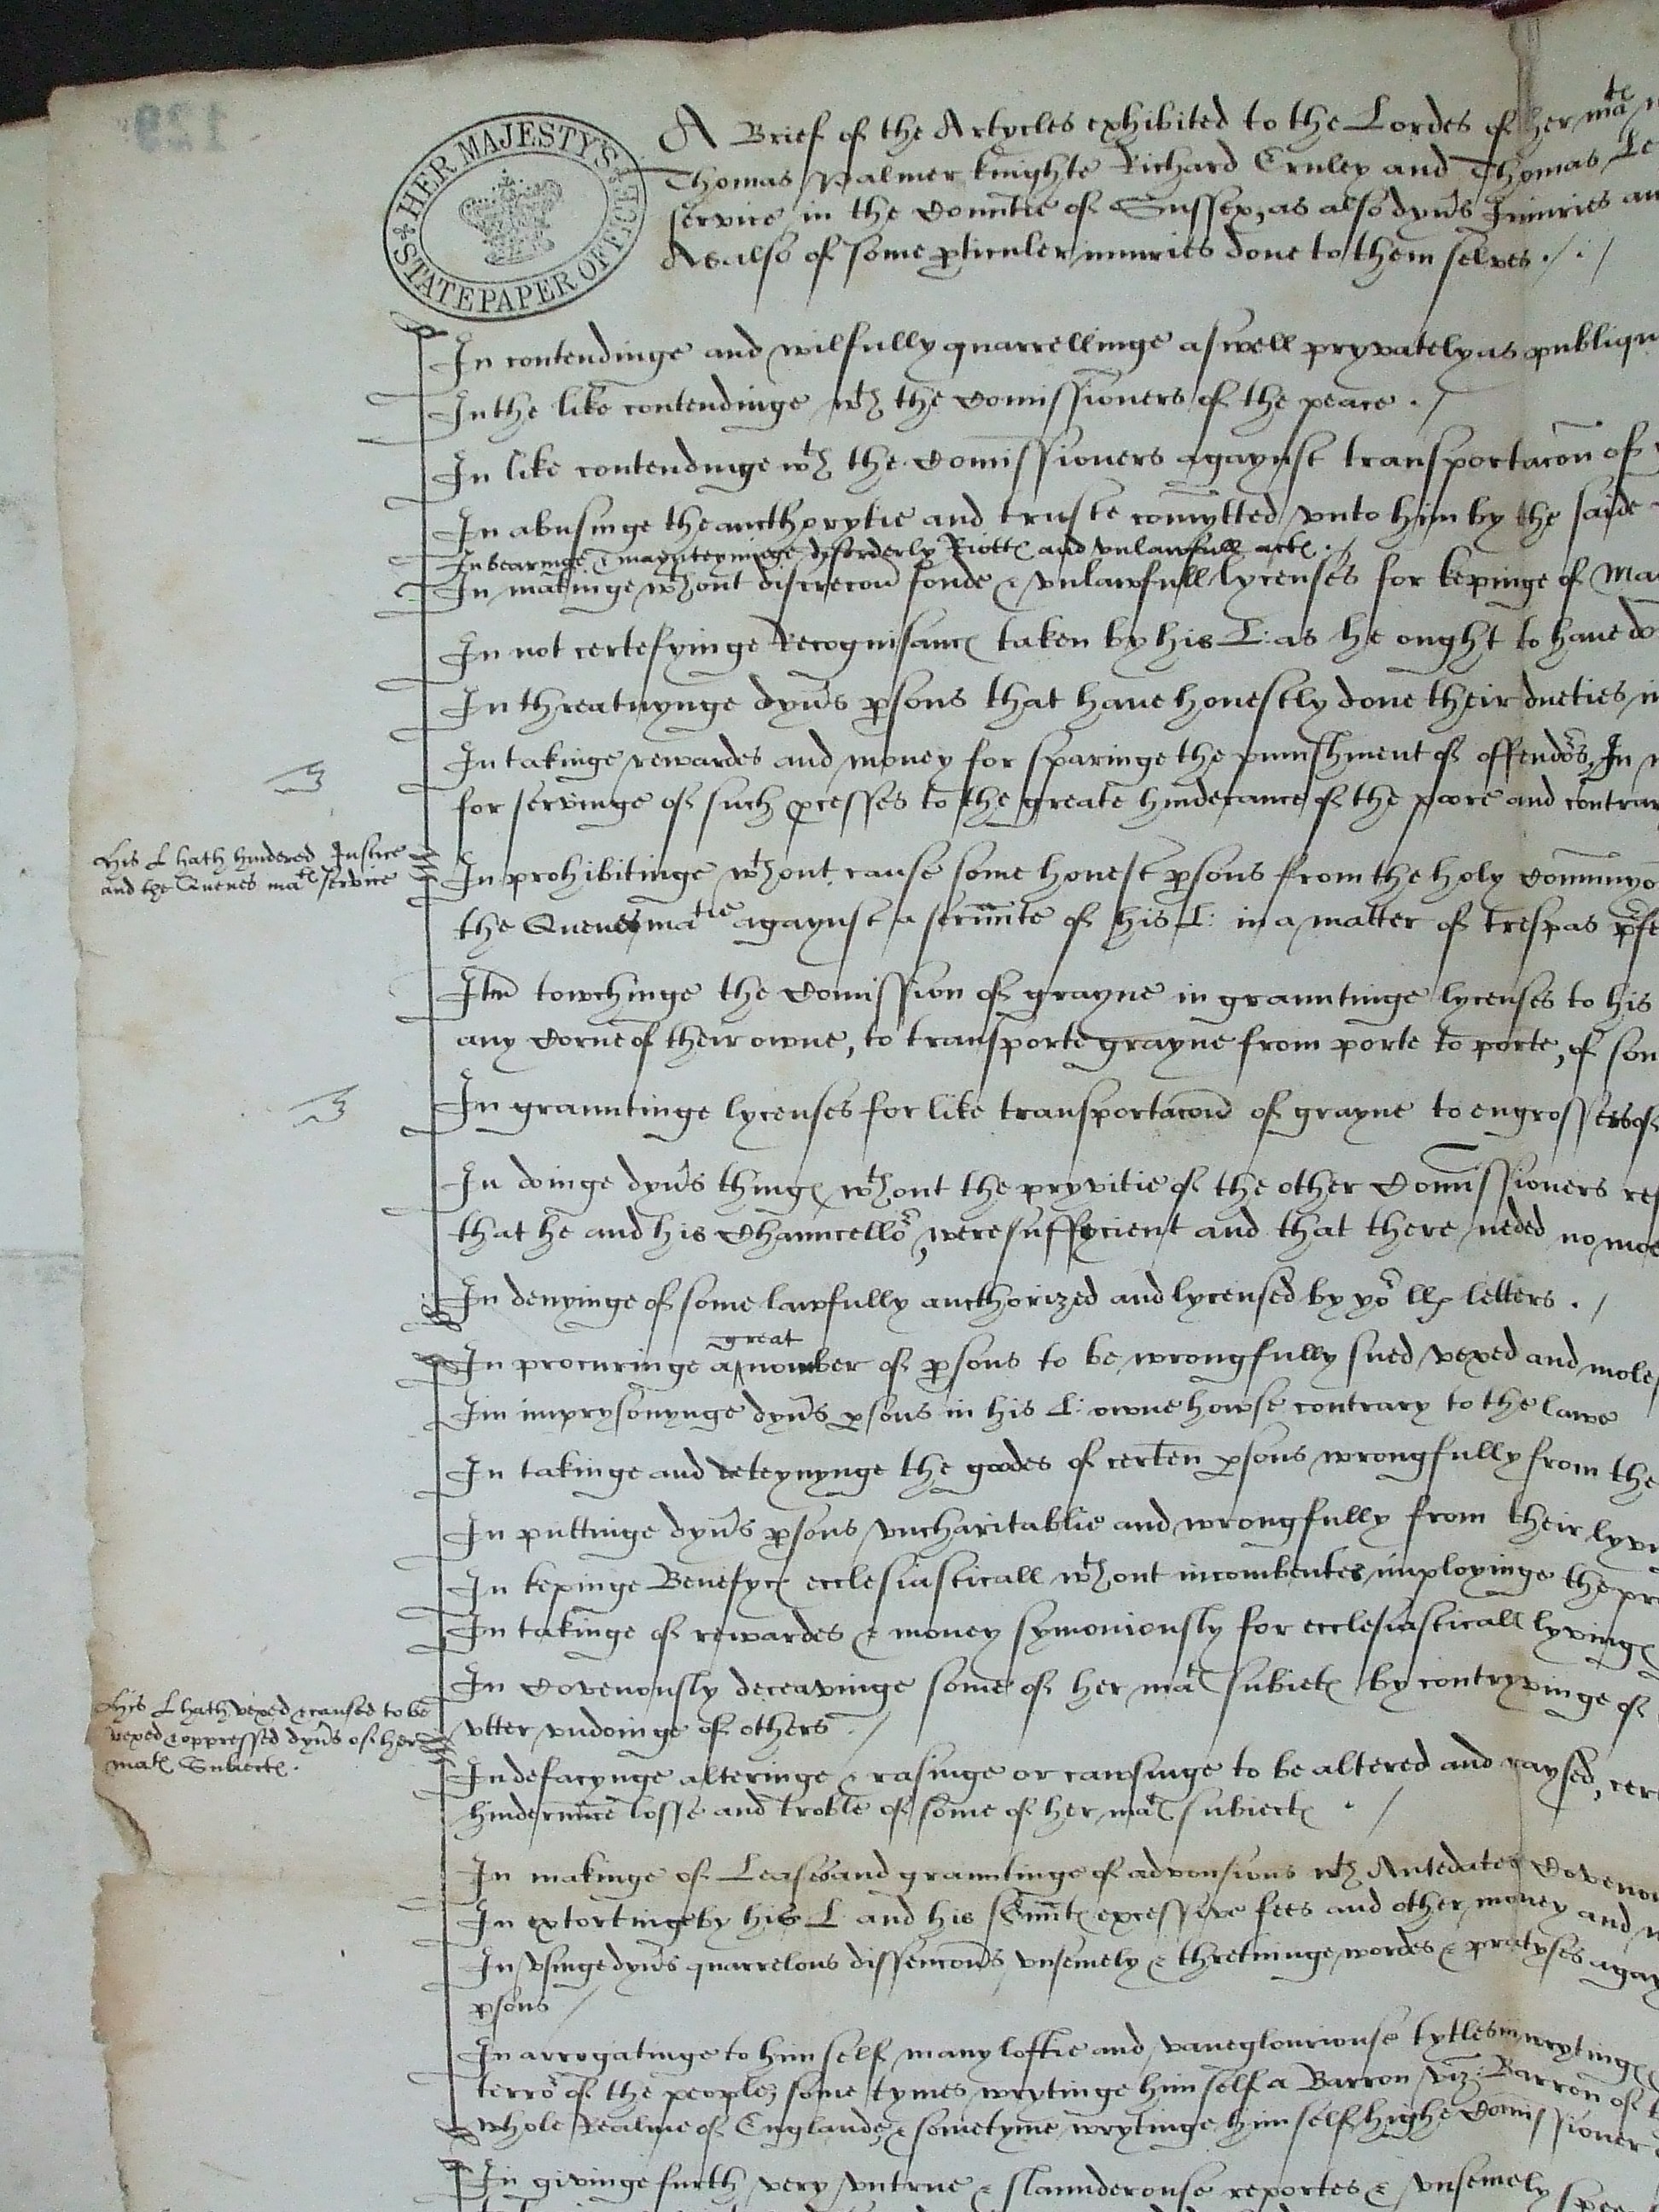 129
HER MAJESTY'S
STATE PAPER OFFICE
A Brief of the Artycles exhibited to the Lordes of her matẽ
Thomas Palmer knighte Richard Ernley and Thomas Le
service in the Countie of Sussex, as also dyu's Iniuries an
As also of some pticuler iniuries done to them selves ./ . /
In contendinge and wilfully quarrellinge aswell pryvately as publiqu
In the like contendinge wth the Comissioners of the peace . /
In like contendinge wth the Comissioners agaynst transportacõn of
In abusinge the aucthorytie and truste comytted unto him by the saide
In bearinge & maynteyninge disorderly Riottes and unlawfull actes . /
In makinge wthout discrecõn fonde & unlawfull lycenses for kepinge of Ma
In not certefyinge Recognisances taken by his L: as he ought to have do
In threatnynge dyu's psons that haue honestly done their dueties in
In takinge rewardes and money for sparinge the punishment of offendors, In
for servinge of such pcesses to the greate hinderance of the poore and contrar
His L hath hindered Justice
and the Quenes mates service
In prohibitinge wthout cause some honest psons from the holy Comunyo
the Quenes matie agaynst a servnte of his L: in a matter of trespas pfe
Itm towchinge the Comission of grayne in grauntinge lycenses to his
any Corne of their owne, to transporte grayne from porte to porte, of som
In grauntinge lycenses for like transportacõn of grayne to engrossers of
In doinge dyu's thinges wthout the pryvitie of the other Comissioners res
that he and his Chauncellor, were suffycient and that there neded no moe
In denyinge of some lawfully aucthorized and lycensed by yor llps letters . /
great
In procuringe a nomber of psons to be wrongfully sued vexed and moles
Im imprysonynge dyu's psons in his L: owne howse contrary to the lawe
In takinge and deteynynge the goodes of certen psons wrongfully from the
In puttinge dyu's psons uncharitablie and wrongfully from their lyvi
In kepinge Benefyces ecclesiasticall wthout incombentes imployinge the pro
In takinge of rewardes & money symoniously for ecclesiasticall lyvinges
In Covenously deceavinge some of her mates subietes by contryvinge of
utter undoinge of others . /
His L hath vexed & caused to be
vexed & oppressed dyu's of her
mates Subiectes .
In defacynge alteringe & rasinge or cawsinge to be altered and raysed, cer
hinderunce losse and troble of some of her mates subiectes . /
In makinge of Leases and grauntinge of advousions wth Antedates Coveno
In extortinge by his L and his servntes excessive fees and other money and
In usinge dyu's quarrelous dissencõns, unsemely & thretninge wordes & practyses agay
psons /
In arrogatinge to him self many loftie and vaneglouriouse tytles in wrytinges
terror of the people, some tymes wrytinge him self a Barron viz: Barron of
whole Realme of Englande, & sometyme wrytinge him self highe Comissioner
In givinge furth very untrue & slaunderouse reportes & unsemely spee